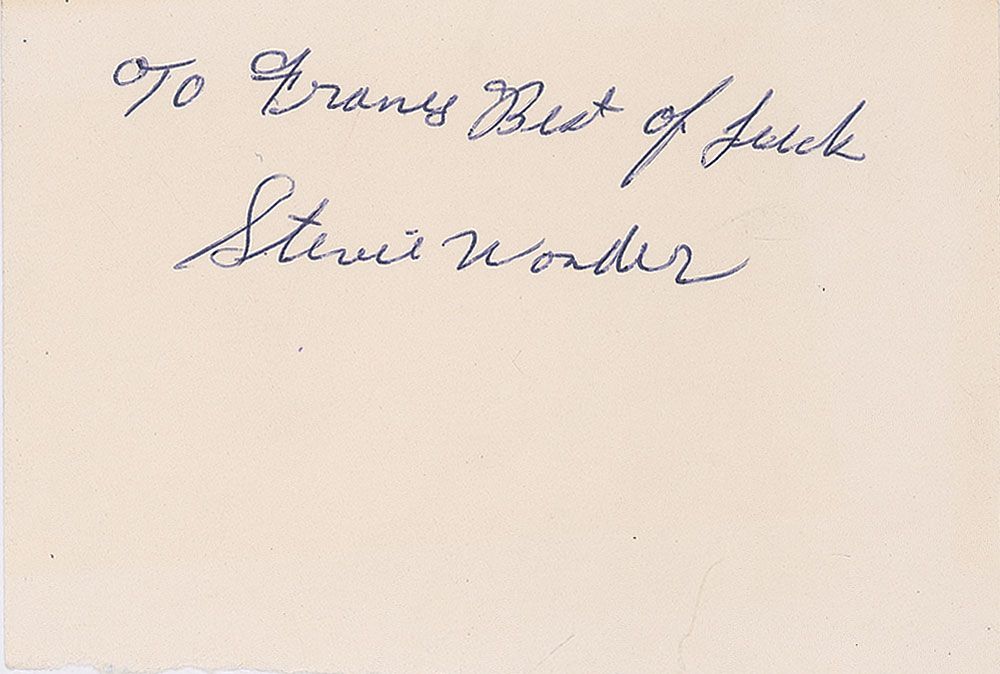 To Francis Best of Luck
Stevie Wonder